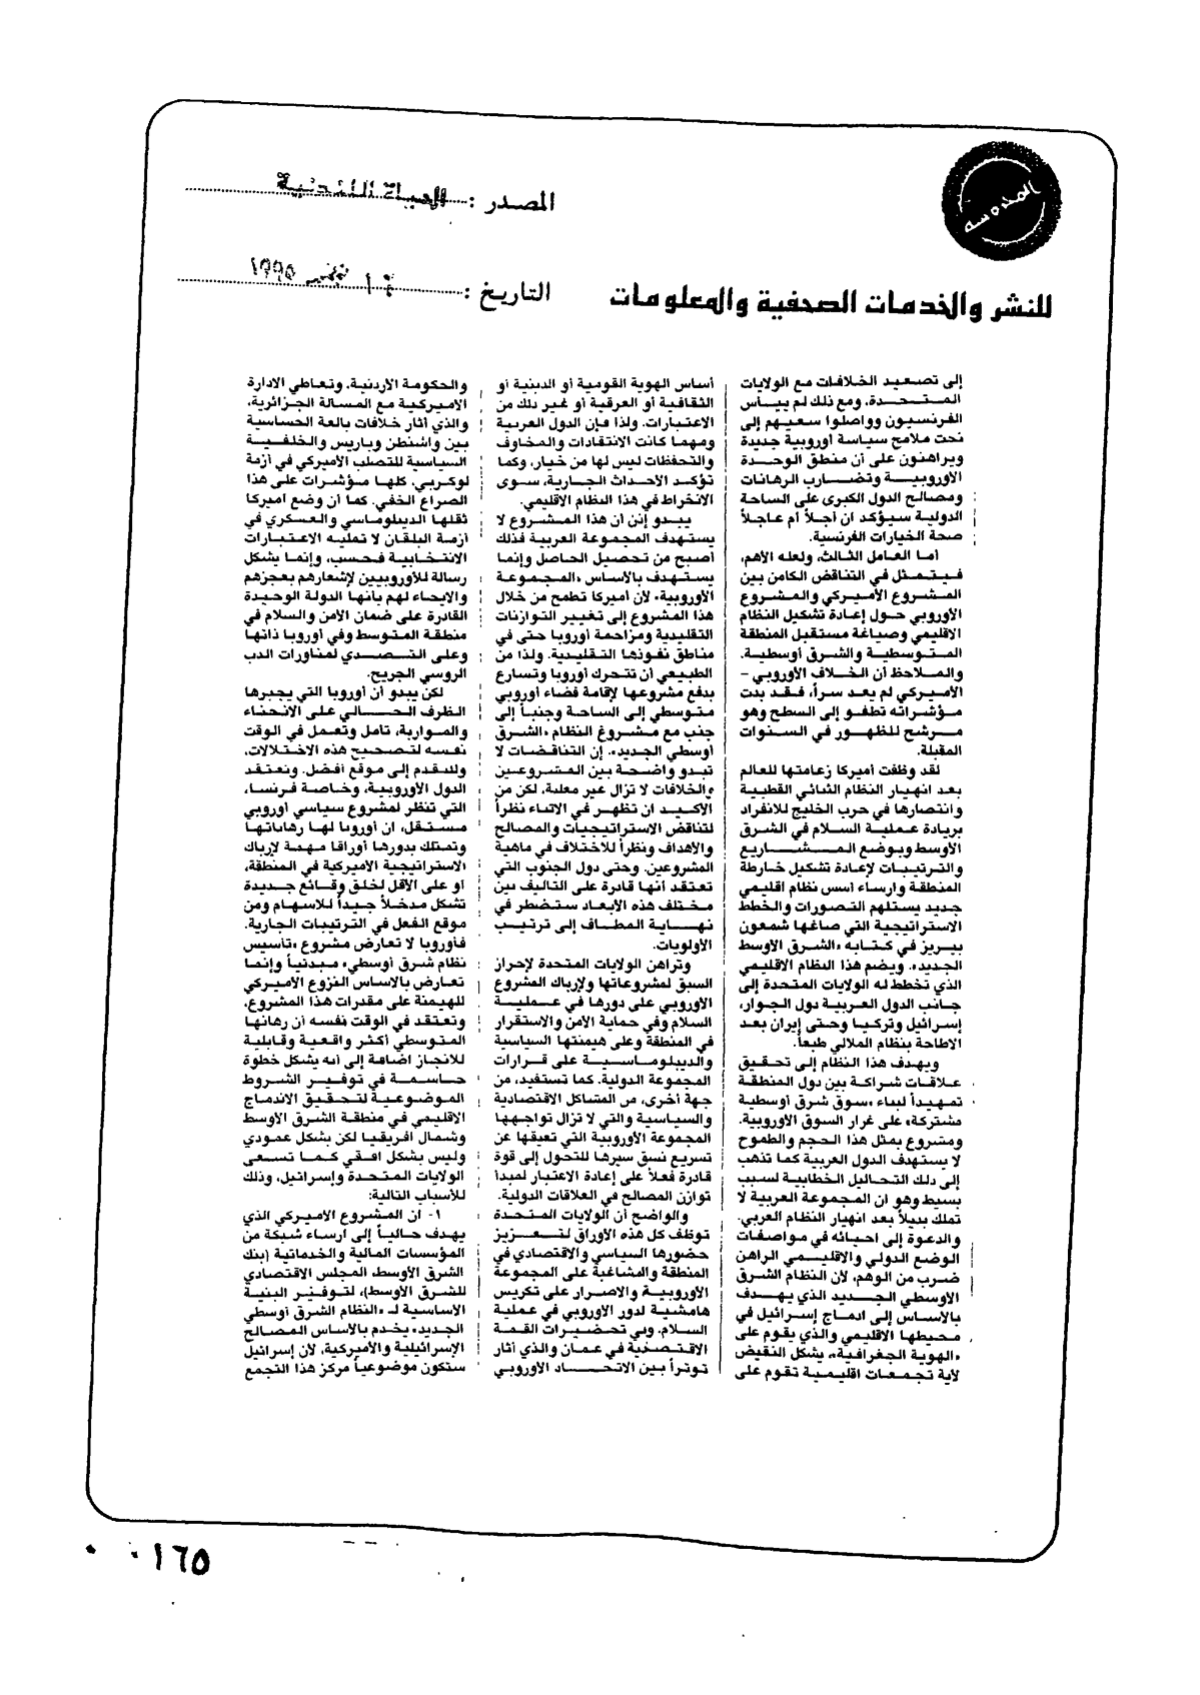 المصدر : الحياة اللندنية
المدوسه
التاريخ : نوفمبر ١٩٩٥
للنشر والخدمات الصحفية والمعلومات
إلى تصعيد الخلافات مع الولايات
المتحدة. ومع ذلك لم ييأس
الفرنسيون وواصلوا سعيهم إلى
نحت ملامح سياسة أوروبية جديدة
ويراهنون على أن منطق الوحدة
الأوروبية وتضارب الرهانات
ومصالح الدول الكبرى على الساحة
الدولية سيؤكد ان أجلاً أم عاجلاً
صحة الخيارات الفرنسية.
أما العامل الثالث، ولعله الأهم،
فيتمثل في التناقض الكامن بين
المشروع الأميركي والمشروع
الأوروبي حول إعادة تشكيل النظام
الاقليمي وصياغة مستقبل المنطقة
المتوسطية والشرق أوسطية.
والملاحظ أن الخلاف الأوروبي -
الأميركي لم يعد سراً، فقد بدت
مؤشراته تطفو إلى السطح وهو
مرشح للظهور في السنوات
المقبلة.
لقد وظفت أميركا زعامتها للعالم
بعد انهيار النظام الثنائي القطبية
وانتصارها في حرب الخليج للانفراد
بريادة عملية السلام في الشرق
الأوسط وبوضع المشاريع
والترتيبات لإعادة تشكيل خارطة
المنطقة وارساء أسس نظام اقليمي
جديد يستلهم التصورات والخطط
الاستراتيجية التي صاغها شمعون
بيريز في كتابه «الشرق الأوسط
الجديد». ويضم هذا النظام الاقليمي
الذي تخطط له الولايات المتحدة إلى
جانب الدول العربية دول الجوار،
إسرائيل وتركيا وحتى إيران بعد
الاطاحة بنظام الملالي طبعاً.
ويهدف هذا النظام إلى تحقيق
علاقات شراكة بين دول المنطقة
تمهيداً لبناء «سوق شرق أوسطية
مشتركة» على غرار السوق الأوروبية.
ومشروع بمثل هذا الحجم والطموح
لا يستهدف الدول العربية كما تذهب
إلى ذلك التحاليل الخطابية لسبب
بسيط وهو ان المجموعة العربية لا
تملك بديلاً بعد انهيار النظام العربي.
والدعوة إلى احيائه في مواصفات
الوضع الدولي والاقليمي الراهن
ضرب من الوهم، لأن النظام الشرق
الأوسطي الجديد الذي يهدف
بالأساس إلى ادماج إسرائيل في
محيطها الاقليمي والذي يقوم على
«الهوية الجغرافية» يشكل النقيض
لاية تجمعات اقليمية تقوم على
أساس الهوية القومية أو الدينية أو
الثقافية أو العرقية أو غير ذلك من
الاعتبارات. ولذا فإن الدول العربية
ومهما كانت الانتقادات والمخاوف
والتحفظات ليس لها من خيار، وكما
تؤكد الأحداث الجارية، سوى
الانخراط في هذا النظام الاقليمي.
يبدو إذن أن هذا المشروع لا
يستهدف المجموعة العربية فذلك
أصبح من تحصيل الحاصل وإنما
يستهدف بالأساس «المجموعة
الأوروبية» لأن أميركا تطمح من خلال
هذا المشروع إلى تغيير التوازنات
التقليدية ومزاحمة أوروبا حتى في
مناطق نفوذها التقليدية. ولذا من
الطبيعي أن تتحرك أوروبا وتسارع
بدفع مشروعها لإقامة فضاء أوروبي
متوسطي إلى الساحة وجنباً إلى
جنب مع مشروع النظام «الشرق
أوسطي الجديد». إن التناقضات لا
تبدو واضحة بين المشروعين
والخلافات لا تزال غير معلنة، لكن من
الأكيد ان تظهر في الاثناء نظراً
لتناقض الاستراتيجيات والمصالح
والأهداف ونظراً للاختلاف في ماهية
المشروعين. وحتى دول الجنوب التي
تعتقد أنها قادرة على التأليف بين
مختلف هذه الأبعاد ستضطر في
نهاية المطاف إلى ترتيب
الأولويات.
وتراهن الولايات المتحدة لإحراز
السبق لمشروعاتها ولإرباك المشروع
الأوروبي على دورها في عملية
السلام وفي حماية الأمن والاستقرار
في المنطقة وعلى هيمنتها السياسية
والديبلوماسية على قرارات
المجموعة الدولية. كما تستفيد، من
جهة أخرى، من المشاكل الاقتصادية
والسياسية والتي لا تزال تواجهها
المجموعة الأوروبية التي تعيقها عن
تسريع نسق سيرها للتحول إلى قوة
قادرة فعلاً على إعادة الاعتبار لمبدأ
توازن المصالح في العلاقات الدولية.
والواضح أن الولايات المتحدة
توظف كل هذه الأوراق لتعزيز
حضورها السياسي والاقتصادي في
المنطقة والمشاغبة على المجموعة
الأوروبية والاصرار على تكريس
هامشية لدور الأوروبي في عملية
السلام. وفي تحضيرات القمة
الاقتصادية في عمان والذي أثار
توتراً بين الاتحاد الأوروبي
والحكومة الأردنية، وتعاطي الادارة
الأميركية مع المسالة الجزائرية،
والذي أثار خلافات بالغة الحساسية
بين واشنطن وباريس والخلفية
السياسية للتصلب الأميركي في أزمة
لوكربي. كلها مؤشرات على هذا
الصراع الخفي. كما أن وضع أميركا
ثقلها الديبلوماسي والعسكري في
أزمة البلقان لا تمليه الاعتبارات
الانتخابية فحسب، وإنما يشكل
رسالة للأوروبيين لإشعارهم بعجزهم
والايحاء لهم بانها الدولة الوحيدة
القادرة على ضمان الأمن والسلام في
منطقة المتوسط وفي أوروبا ذاتها
وعلى التصدي لمناورات الدب
الروسي الجريح.
لكن يبدو أن أوروبا التي يجبرها
الظرف الحالي على الانحناء
والمواربة، تامل وتعمل في الوقت
نفسه لتصحيح هذه الاختلالات،
وللتقدم إلى موقع أفضل. ونعتقد
الدول الأوروبية، وخاصة فرنسا،
التي تنظر لمشروع سياسي أوروبي
مستقل، ان أوروبا لها رهاناتها
وتمتلك بدورها أوراقا مهمة لإرباك
الاستراتيجية الأميركية في المنطقة،
او على الأقل لخلق وقائع جديدة
تشكل مدخلاً جيداً للاسهام ومن
موقع الفعل في الترتيبات الجارية.
فأوروبا لا تعارض مشروع «تأسيس
نظام شرق أوسطي» مبدئياً وإنما
تعارض بالأساس النزوع الأميركي
للهيمنة على مقدرات هذا المشروع،
وتعتقد في الوقت نفسه أن رهانها
المتوسطي أكثر واقعية وقابلية
للانجاز اضافة إلى أنه يشكل خطوة
حاسمة في توفير الشروط
الموضوعية لتحقيق الاندماج
الاقليمي في منطقة الشرق الأوسط
وشمال افريقيا لكن بشكل عمودي
وليس بشكل افقي كما تسعى
الولايات المتحدة وإسرائيل، وذلك
للأسباب التالية:
١- ان المشروع الأميركي الذي
يهدف حالياً إلى ارساء شبكة من
المؤسسات المالية والخدماتية (بنك
الشرق الأوسط، المجلس الاقتصادي
للشرق الأوسط)، لتوفير البنية
الأساسية لـ «النظام الشرق أوسطي
الجديد» يخدم بالأساس المصالح
الإسرائيلية والأميركية، لأن إسرائيل
ستكون موضوعياً مركز هذا التجمع
٠٠١٦٥